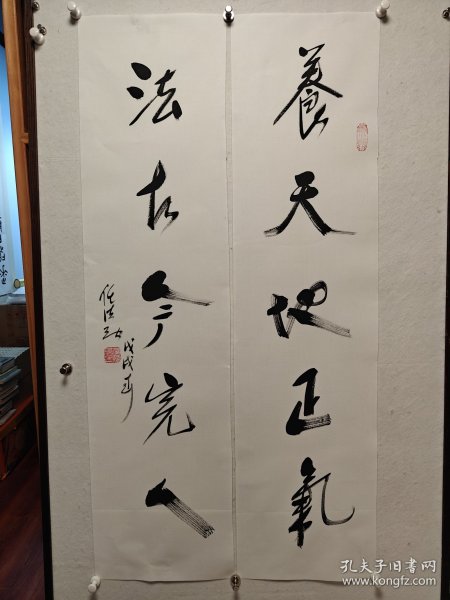 養天地正氣
法古今完人
戊戌年
孔夫子旧书网
www.kongfz.com